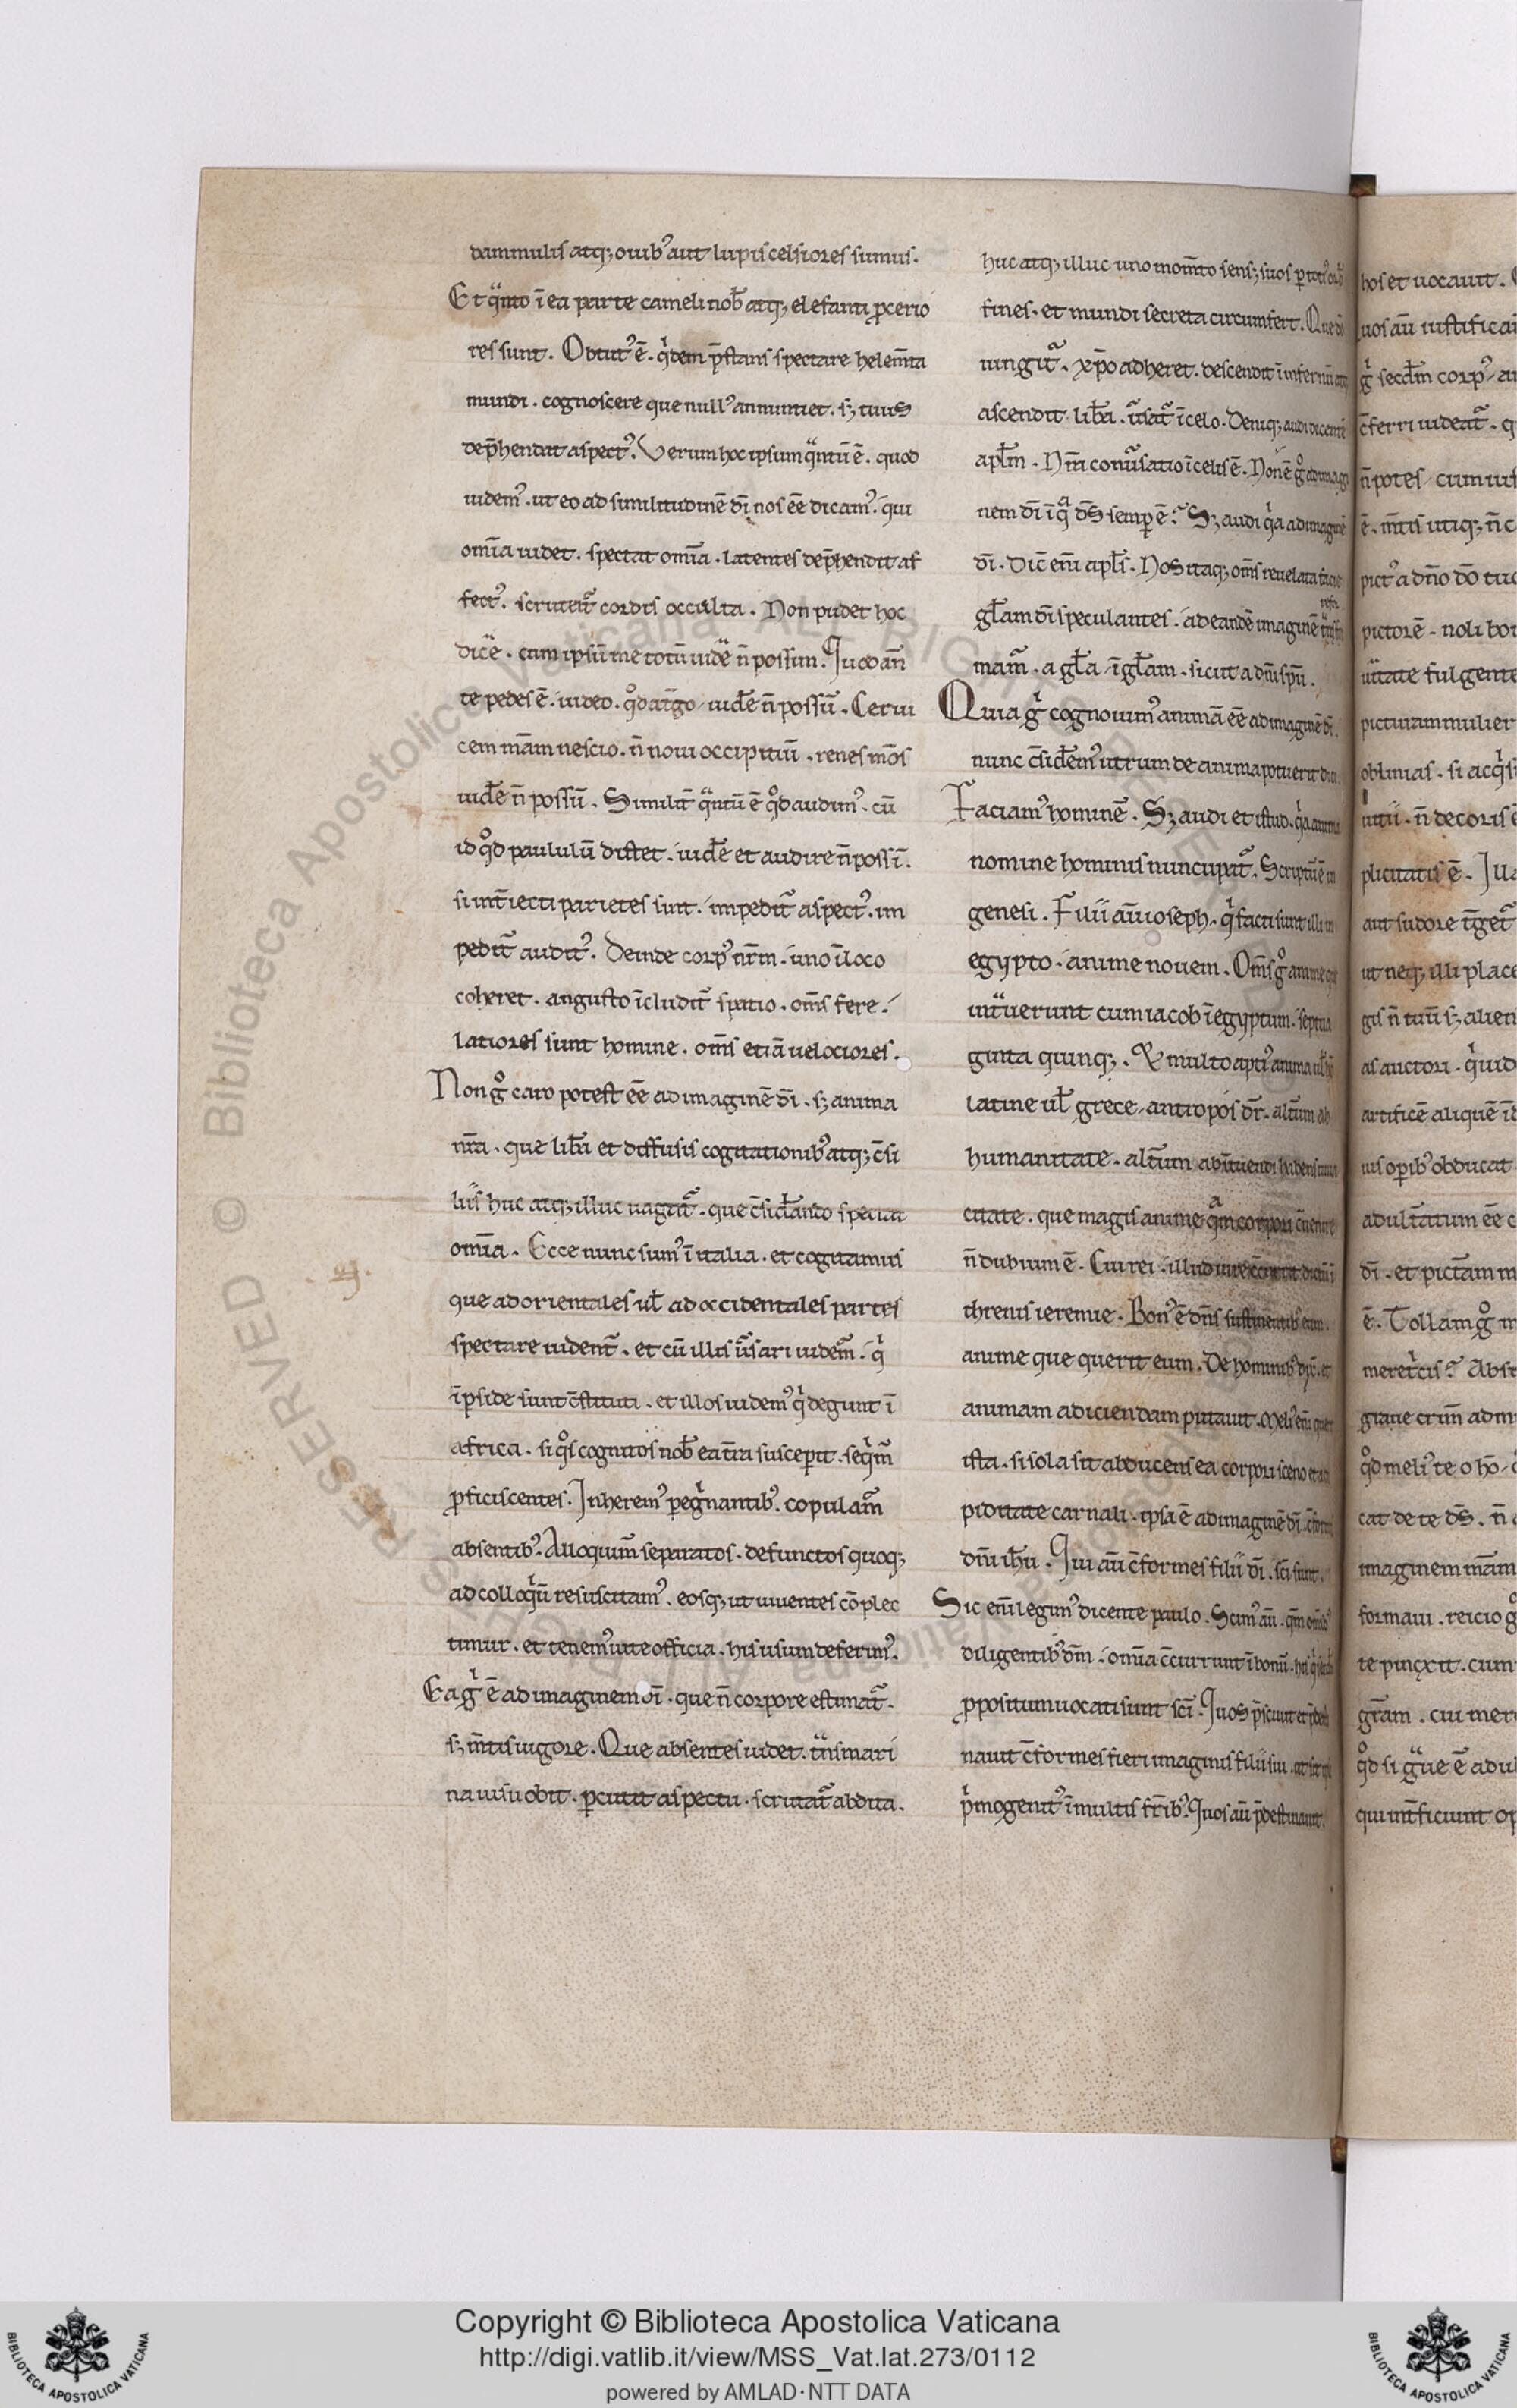 dammulis atq; ouib' aut lupis celsiores sumus.
Et qnto ī ea parte cameli nob̄ atq; elefanti ꝓcerio
res sunt. Obtut' ē. qdem p̄stans spectare helem̄ta
mundi. cognoscere que null' annuntiet. s; tuus
dep̄hendat aspect'. Verum hoc ipsum qntū ē. quod
uidem'. ut eo ad similitudinē dī nos eē dicam'. qui
om̄ia uidet. spectat om̄ia. latentes dep̄hendit af
fect'. scrutat̄ cordis occulta. Non pudet hoc
dicē. cum ipsū me totū uidē n̄ possim. Quod an̄
te pedes ē. uideo. qd a t̄go uidē n̄ possū. Cerui
cem mēam nescio. n̄ noui occipitiū. renes mēos
uidē n̄ possū. Similit̄ qntū ē qd audim'. cū
id qd paululū distet. uidē et audire n̄ possī.
si int̄iecti parietes sint. impedit̄ aspect'. im
pedit̄ audit'. Deinde corp' nr̄m. uno ī loco
coheret. angusto īcludit̄ spatio. om̄s fere
latiores sunt homine. om̄s etiā uelociores.
Non g̊ caro potest eē ad imaginē dī. s; anima
nr̄a. que lib̄a et diffusis cogitationib' atq; c̄si
liis huc atq; illuc uagat̄. que c̄sid̄ando spectat
om̄ia. Ecce nunc sum' ī italia. et cogitamus
que ad orientales ul̄ ad occidentales partes
spectare uident̄. et cū illis ūsari uidem̄. q
ī pside sunt c̄stituti. et illos uidem' q degunt ī
africa. si qs cognitos nob̄ ea t̄ra suscepit. seqm̄
ꝓficiscentes. Inherem' pegnantib'. copulam̄
absentib'. Alloquim̄ separatos. defunctos quoq;
ad colloqū resuscitam'. eosq; ut uiuentes cōplec
timur. et tenem' uite officia. his usum deferim'.
Ea g ē ad imaginem dī. que n̄ corpore estimat̄.
s; m̄tis uigore. Que absentes uidet. tnsmari
na uisu obit. ꝑcurrit aspectu. scrutat̄ abdita.
huc atq; illuc uno mom̄to sens; suos ꝑ toti' orb'
fines. et mundi secreta circumfert. Que dō
iungit̄. xp̄o adheret. descendit ī infernū atq
ascendit. lib̄a. ūsat̄ ī celo. Deniq; audi dicentē
apl̄m. Nr̄a conūsatio ī celis ē. Non ē g̊ ad imagi
nem dī ī q ds̄ semp ē? S; audi qa ad imaginē
dī. Dic̄ eni apl̄s. Nos itaq; om̄s reuelata facie
gl̄am dī speculantes. ad eandē imaginē
mam̄. a gl̄a ī gl̄am. sicut a dn̄i spū.
Quia g cognouim' animā eē ad imaginē dī.
nunc c̄sid̄em' utrum de anima potuerit dici.
Faciam' hominē. S; audi et istud. qa anima
nomine hominis nuncupat̄. Scriptū ē in
genesi. Filii aūi ioseph. q facti sunt illi in
egypto. anime nouem. Om̄s g̊ anime que
int̄uerunt cum iacob ī egyptum. septua
ginta quinq;. & multo apti' anima ul̄ hō
latine ul̄ grece antropos dr̄. alt̄um ab
humanitate. alt̄um ab īt̄uendi habens uiua
citate. que magis anime qm corpori c̄uenire
n̄ dubium ē. Cui rei illud
threnis ieremie. Bon' ē dn̄s sustinentib' eum.
anime que querit eum. De hominib' dix̄. et
animam adiciendam putauit. Meli' eni quer
ista. si sola sit abducens ea corpori sceno et cu
piditate carnali. ipsa ē ad imaginē dī. c̄formis
dn̄i ih̄u. Qui aū c̄formes filii dī. sc̄i sunt.
Sic eni legim' dicente paulo. Scim' aū. qm̄ omīb'
diligentib' dm̄. om̄ia c̄currunt ī bonū. his q secdm̄
ꝓpositum uocati sunt sc̄i. Quos p̄sciuit et p̄desti
nauit c̄formes fieri imaginis filii sui. ut sit ipse
pmogenit' ī multis fr̄ib'. Quos aū p̄destinauit.
hos et uocauit.
uos aū iustificau
g secdm̄ corp' au
c̄ferri uideat̄. q
n̄ potes cum ius
ē. m̄tis utiq; n̄ c
pict' a dn̄o dō tuo
pictorē. noli bon
uitate fulgente
picturam mulier
oblinias. si acqsi
uitii. n̄ decoris ē
plicitatis ē. Qua
aut sudore t̄get̄
ut neq; illi place
gis n̄ tuū s; alien
as auctori. quid
artificē aliquē īd
ius opib' obducat
adult̄atum eē c
dī. et pictam m
ē. Tollam g̊ m
meretcis? Abst
graue crim̄ adm
qd meli' te o hō
cat de te ds̄. n̄
imaginem mēam
formaui. reicio g̊
te pinxit. cum
gr̄am. cui mere
qd si graue ē adul
qui int̄ficiunt op
Copyright © Biblioteca Apostolica Vaticana
http://digi.vatlib.it/view/MSS_Vat.lat.273/0112
powered by AMLAD·NTT DATA
BIBLIOTECA APOSTOLICA VATICANA
BIBLIOTECA APOSTOLICA VATICANA